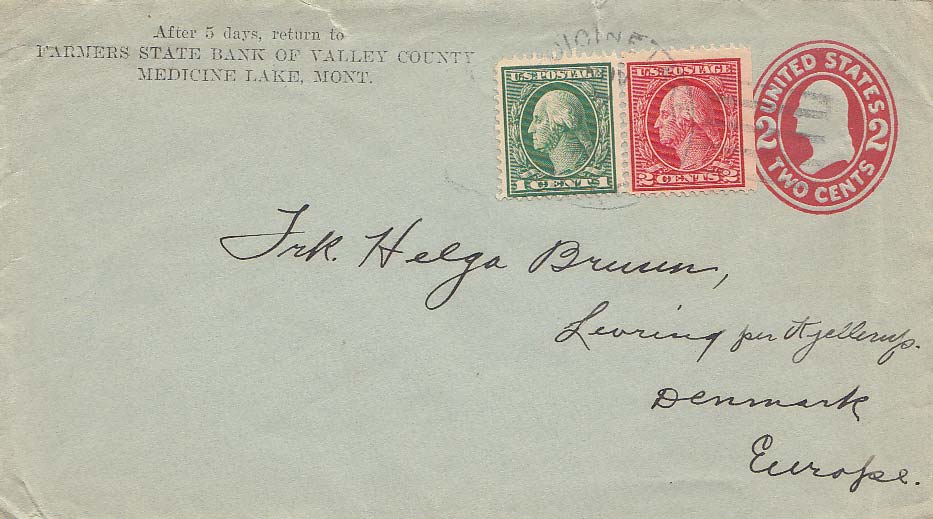 After 5 days, return to
FARMERS STATE BANK OF VALLEY COUNTY
MEDICINE LAKE, MONT.
U.S. POSTAGE
1 CENT 1
U.S. POSTAGE
2 CENTS 2
UNITED STATES
2 2
TWO CENTS
Frk. Helga Bruun,
Levring per Kjellerup.
Denmark
Europe.